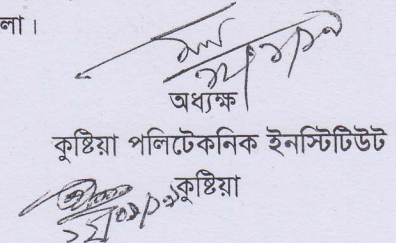 লা।
অধ্যক্ষ
কুষ্টিয়া পলিটেকনিক ইনস্টিটিউট
কুষ্টিয়া